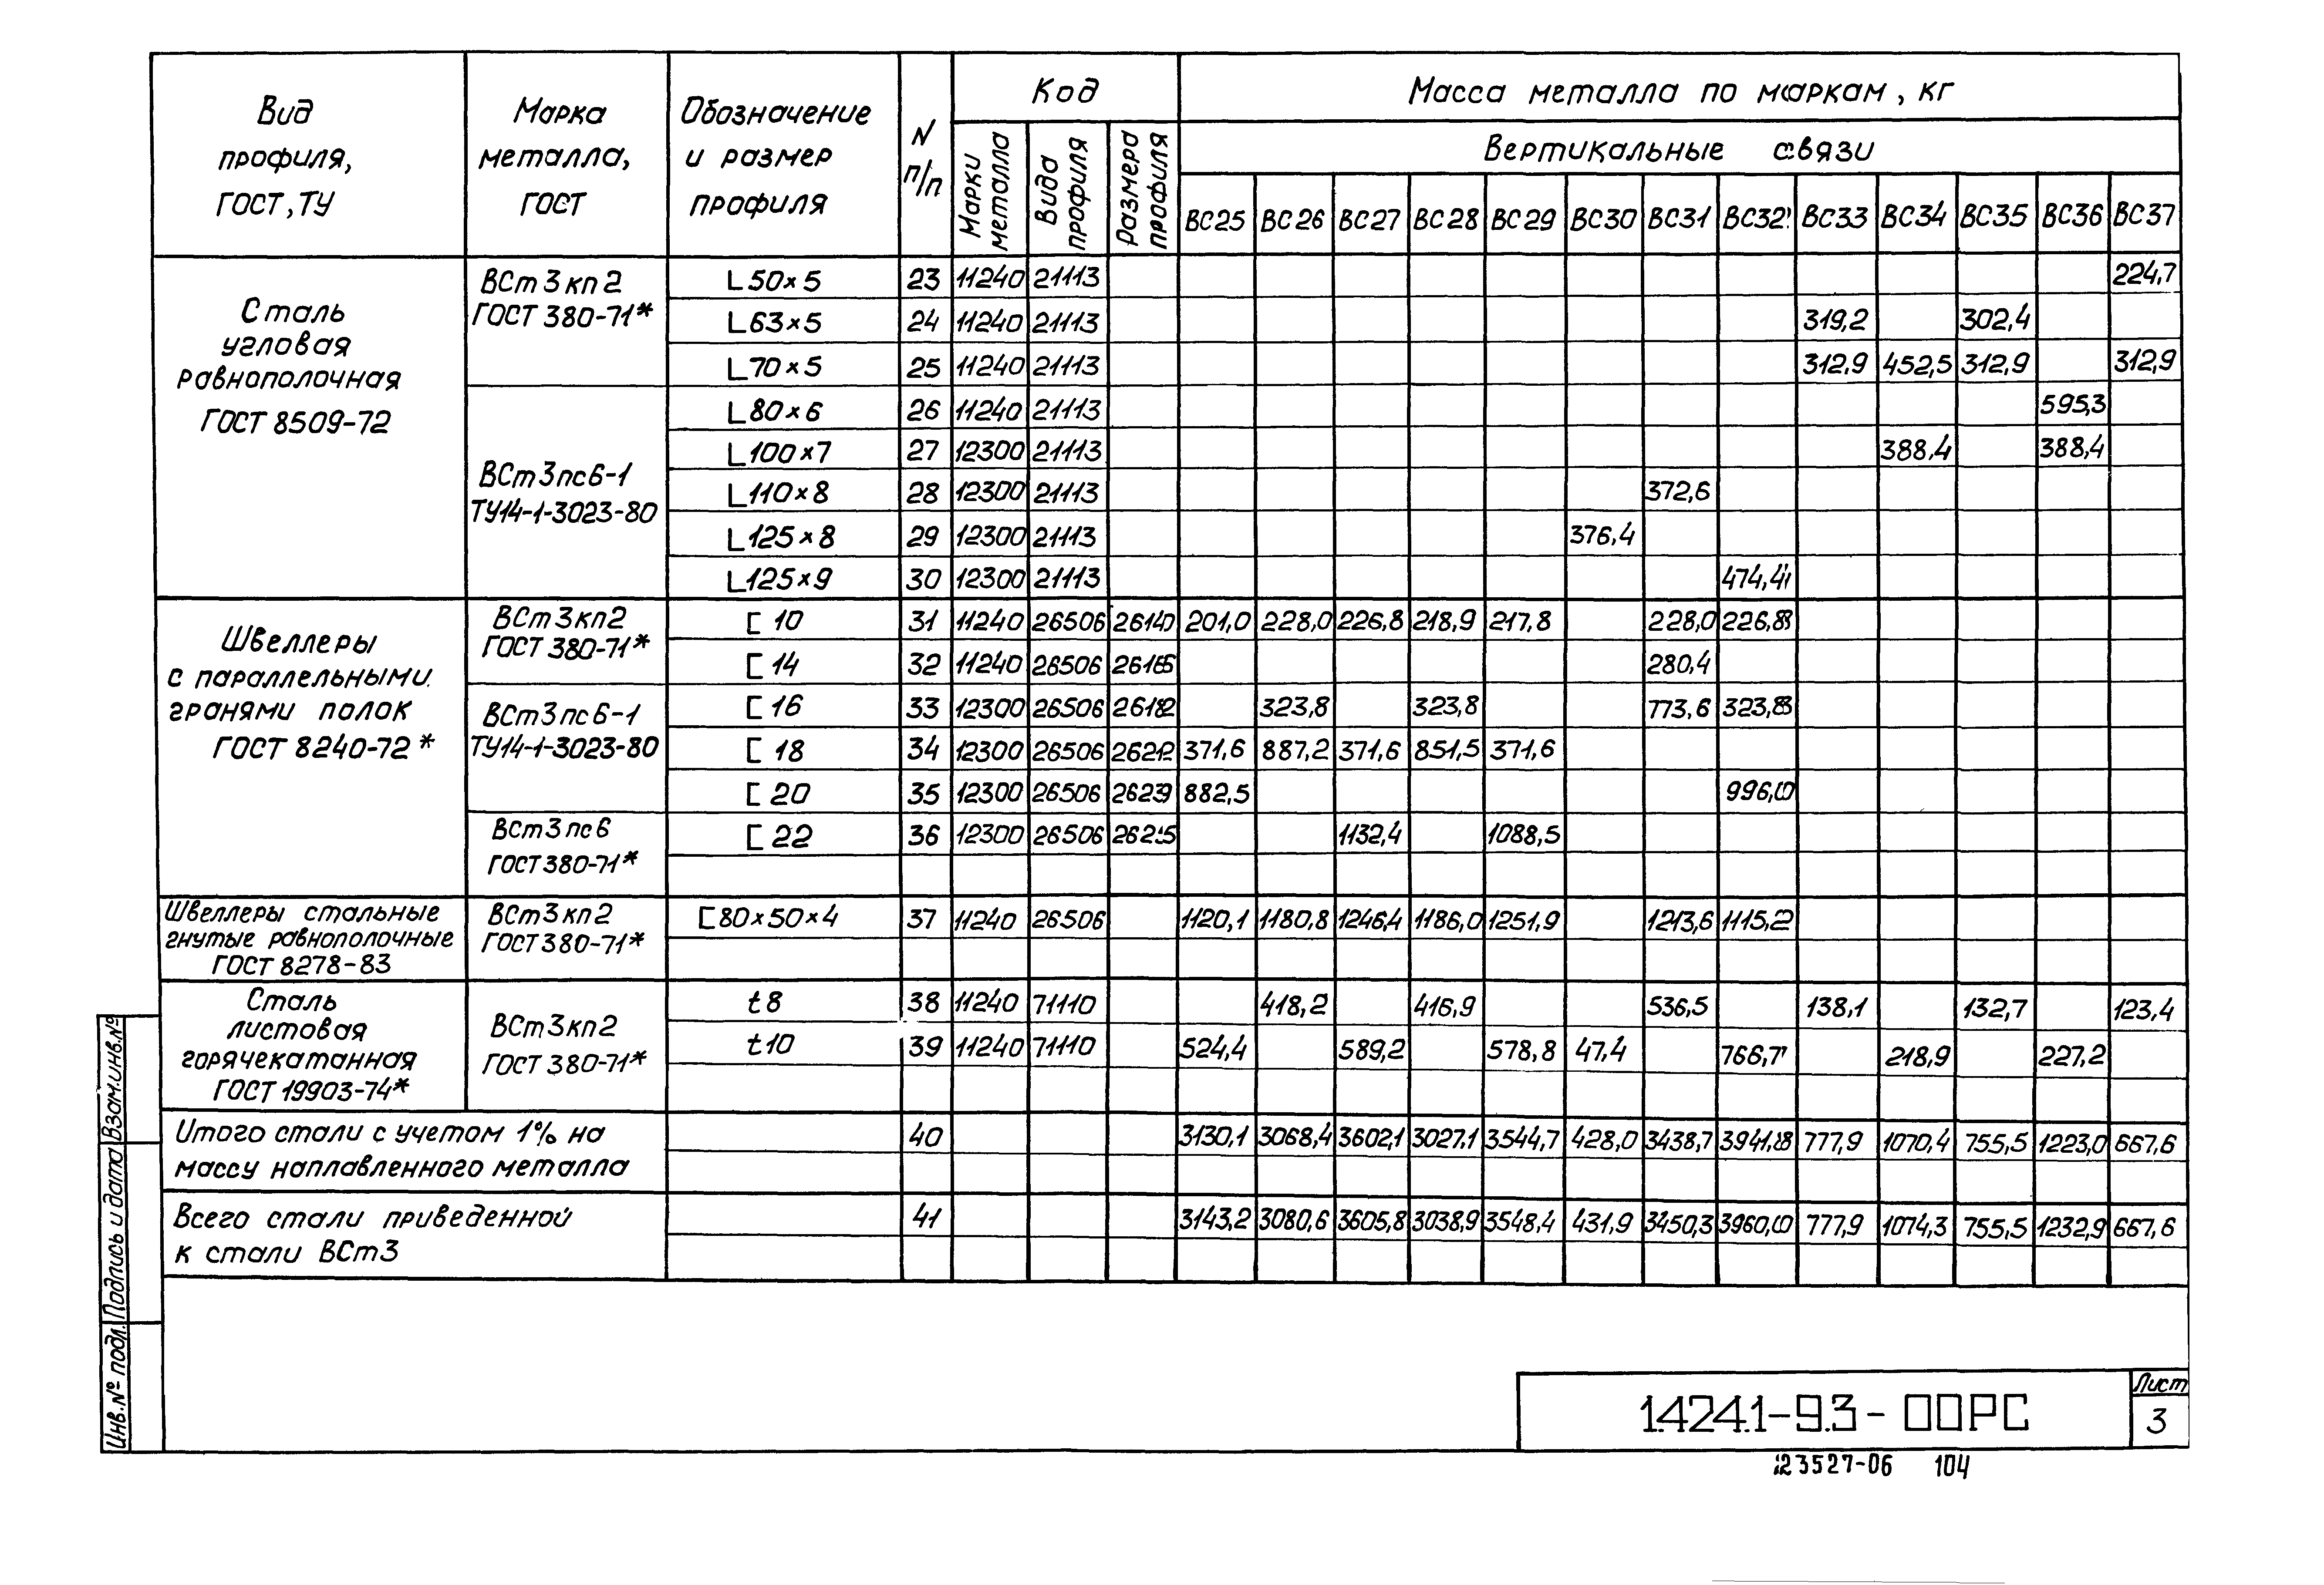 Вид профиля, ГОСТ, ТУ
Марка металла, ГОСТ
Обозначение и размер профиля
N п/п
Код
Марки металла
Вида профиля
Размера профиля
Масса металла по маркам, кг
Вертикальные связи
ВС25 ВС26 ВС27 ВС28 ВС29 ВС30 ВС31 ВС32 ВС33 ВС34 ВС35 ВС36 ВС37
Сталь угловая равнополочная ГОСТ 8509-72
ВСт3кп2 ГОСТ 380-71*
L50×5 23 11240 21113 224,7
L63×5 24 11240 21113 319,2 302,4
L70×5 25 11240 21113 312,9 452,5 312,9 312,9
ВСт3пс6-1 ТУ14-1-3023-80
L80×6 26 11240 21113 595,3
L100×7 27 12300 21113 388,4 388,4
L110×8 28 12300 21113 372,6
L125×8 29 12300 21113 376,4
L125×9 30 12300 21113 474,4
Швеллеры с параллельными гранями полок ГОСТ 8240-72*
ВСт3кп2 ГОСТ 380-71*
[ 10 31 11240 26506 26140 201,0 228,0 226,8 218,9 217,8 228,0 226,8
[ 14 32 11240 26506 26165 280,4
ВСт3пс6-1 ТУ14-1-3023-80
[ 16 33 12300 26506 26182 323,8 323,8 773,6 323,8
[ 18 34 12300 26506 26212 371,6 887,2 371,6 851,5 371,6
[ 20 35 12300 26506 26239 882,5 996,0
ВСт3пс6 ГОСТ 380-71*
[ 22 36 12300 26506 1132,4 1088,5
Швеллеры стальные гнутые равнополочные ГОСТ 8278-83
ВСт3кп2 ГОСТ 380-71*
[80×50×4 37 11240 26506 1120,1 1180,8 1246,4 1186,0 1251,9 1213,6 1115,2
Сталь листовая горячекатанная ГОСТ 19903-74*
ВСт3кп2 ГОСТ 380-71*
t8 38 11240 71110 418,2 416,9 536,5 138,1 132,7 123,4
t10 39 11240 71110 524,4 589,2 578,8 47,4 766,7 218,9 227,2
Итого стали с учетом 1% на массу наплавленного металла
40 3130,1 3068,4 3602,1 3027,1 3544,7 428,0 3438,7 3941,8 777,9 1070,4 755,5 1223,0 667,6
Всего стали приведенной к стали ВСт3
41 3143,2 3080,6 3605,8 3038,9 3548,4 431,9 3450,3 3960,0 777,9 1074,3 755,5 1232,9 667,6
Инв.№ подл. Подпись и дата Взам.инв.№
1.424.1-9.3-00РС
Лист
3
23527-06 104